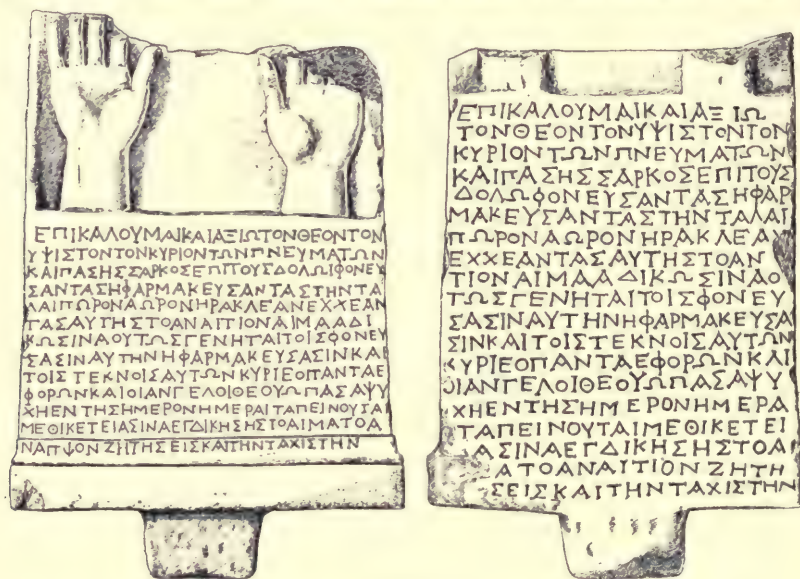 ΕΠΙΚΑΛΟΥΜΑΙΚΑΙΑΞΙΩΤΟΝΘΕΟΝΤΟΝ
ΥΨΙΣΤΟΝΤΟΝΚΥΡΙΟΝΤΩΝΠΝΕΥΜΑΤΩΝ
ΚΑΙΠΑΣΗΣΣΑΡΚΟΣΕΠΙΤΟΥΣΔΟΛΩΙΦΟΝΕΥ
ΣΑΝΤΑΣΗΦΑΡΜΑΚΕΥΣΑΝΤΑΣΤΗΝΤΑ
ΛΑΙΠΩΡΟΝΑΩΡΟΝΗΡΑΚΛΕΑΝΕΧΧΕΑΝ
ΤΑΣΑΥΤΗΣΤΟΑΝΑΙΤΙΟΝΑΙΜΑΑΔΙ
ΚΩΣΙΝΑΟΥΤΩΣΓΕΝΗΤΑΙΤΟΙΣΦΟΝΕΥ
ΣΑΣΙΝΑΥΤΗΝΗΦΑΡΜΑΚΕΥΣΑΣΙΝΚΑΙ
ΤΟΙΣΤΕΚΝΟΙΣΑΥΤΩΝΚΥΡΙΕΟΠΑΝΤΑΕ
ΦΟΡΩΝΚΑΙΟΙΑΝΓΕΛΟΙΘΕΟΥΩΠΑΣΑΨΥ
ΧΗΕΝΤΗΣΗΜΕΡΟΝΗΜΕΡΑΙΤΑΠΕΙΝΟΥΤΑ
ΜΕΘΙΚΕΤΕΙΑΣΙΝΑΕΓΔΙΚΗΣΗΣΤΟΑΙΜΑΤΟΑ
ΝΑΠΨΟΝΖΗΤΗΣΕΙΣΚΑΙΤΗΝΤΑΧΙΣΤΗΝ
ΕΠΙΚΑΛΟΥΜΑΙΚΑΙΑΞΙΩ
ΤΟΝΘΕΟΝΤΟΝΥΨΙΣΤΟΝΤΟΝ
ΚΥΡΙΟΝΤΩΝΠΝΕΥΜΑΤΩΝ
ΚΑΙΠΑΣΗΣΣΑΡΚΟΣΕΠΙΤΟΥΣ
ΔΟΛΩΦΟΝΕΥΣΑΝΤΑΣΗΦΑΡ
ΜΑΚΕΥΣΑΝΤΑΣΤΗΝΤΑΛΑΙ
ΠΩΡΟΝΑΩΡΟΝΗΡΑΚΛΕΑΝ
ΕΧΧΕΑΝΤΑΣΑΥΤΗΣΤΟΑΝ
ΤΙΟΝΑΙΜΑΑΔΙΚΩΣΙΝΑΟ
ΤΩΣΓΕΝΗΤΑΙΤΟΙΣΦΟΝΕΥ
ΣΑΣΙΝΑΥΤΗΝΗΦΑΡΜΑΚΕΥΣΑ
ΣΙΝΚΑΙΤΟΙΣΤΕΚΝΟΙΣΑΥΤΩΝ
ΚΥΡΙΕΟΠΑΝΤΑΕΦΟΡΩΝΚΑΙ
ΟΙΑΝΓΕΛΟΙΘΕΟΥΩΠΑΣΑΨΥ
ΧΗΕΝΤΗΣΗΜΕΡΟΝΗΜΕΡΑ
ΤΑΠΕΙΝΟΥΤΑΙΜΕΘΙΚΕΤΕΙ
ΑΣΙΝΑΕΓΔΙΚΗΣΗΣΤΟΑ
ΑΤΟΑΝΑΙΤΙΟΝΖΗΤΗ
ΣΕΙΣΚΑΙΤΗΝΤΑΧΙΣΤΗΝ